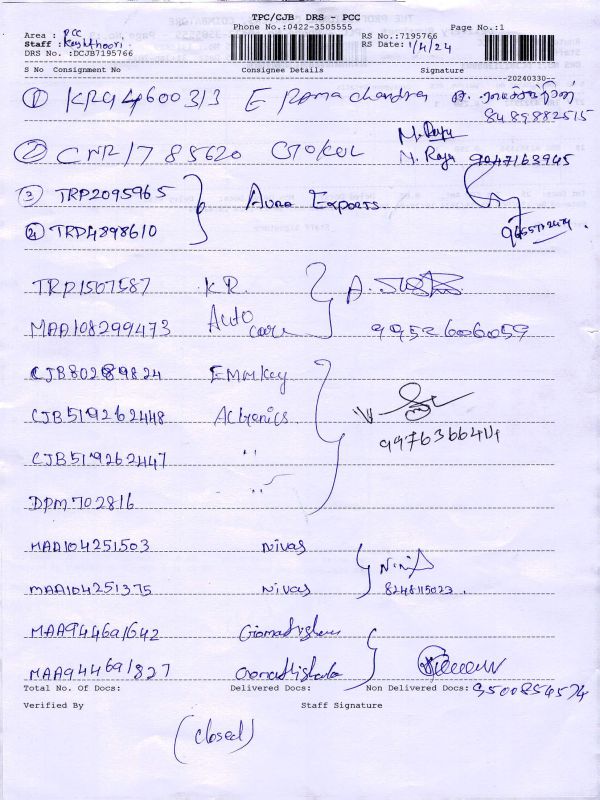 TPC/CJB DRS - PCC
Phone No.:0422-3505555 Page No.:1
Area : PCC RS No.:7195766
Staff : RS Date: 1/4/24
DRS No. :DCJB7195766
S No Consignment No Consignee Details Signature
20240330
① KRG4600313 E Rama chandra
8489882515
M. Raju
② CNR1785620 GOKUL M. Raja 9047163945
③ TRP2095965 Aura Exports
④ TRP4898610
TRP1507587 K.R. A.
MAA108299473 Auto care 9952606059
CJB80289824 Emmkey
CJB519262448 Actronics
9976366414
CJB519262447 "
DPM702816 "
MAA104251503 Nivas
MAA104251375 Nivas 8248115023
MAA944691642
MAA944691827
Total No. Of Docs: Delivered Docs: Non Delivered Docs: 9500854574
Verified By Staff Signature
(closed)